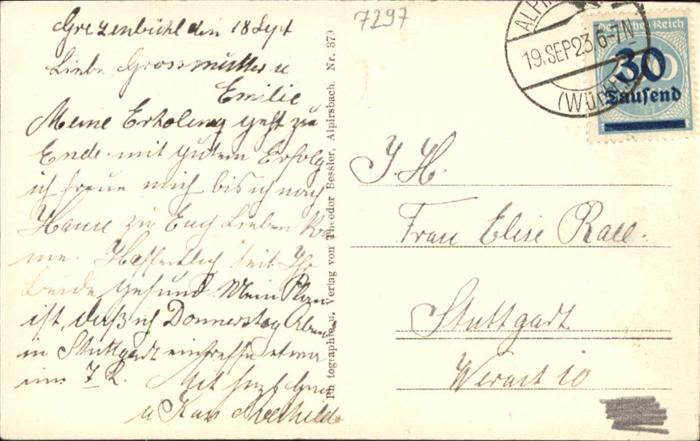 7297
Grezenbühl den 18 Sept
Liebe Grossmutter u
Emilie
Meine Erholung geht zu
Ende mit gutem Erfolg
ich freue mich bis ich nach
Hause zu Euch Lieben
Hoffentlich seit Ihr
beide gesund. Mein Plan
ist, daß ich Donnerstag Abend
in Stuttgart eintreffe etwa
um 7
Mit herzl Gruss
u Kuss Mathilde
Photographie u. Verlag von Theodor Bessler, Alpirsbach. Nr. 379
19.SEP.23.6-7N
(WÜ
Deutsches Reich
30
Tausend
I H.
Frau Elise Rall.
Stuttgart
10